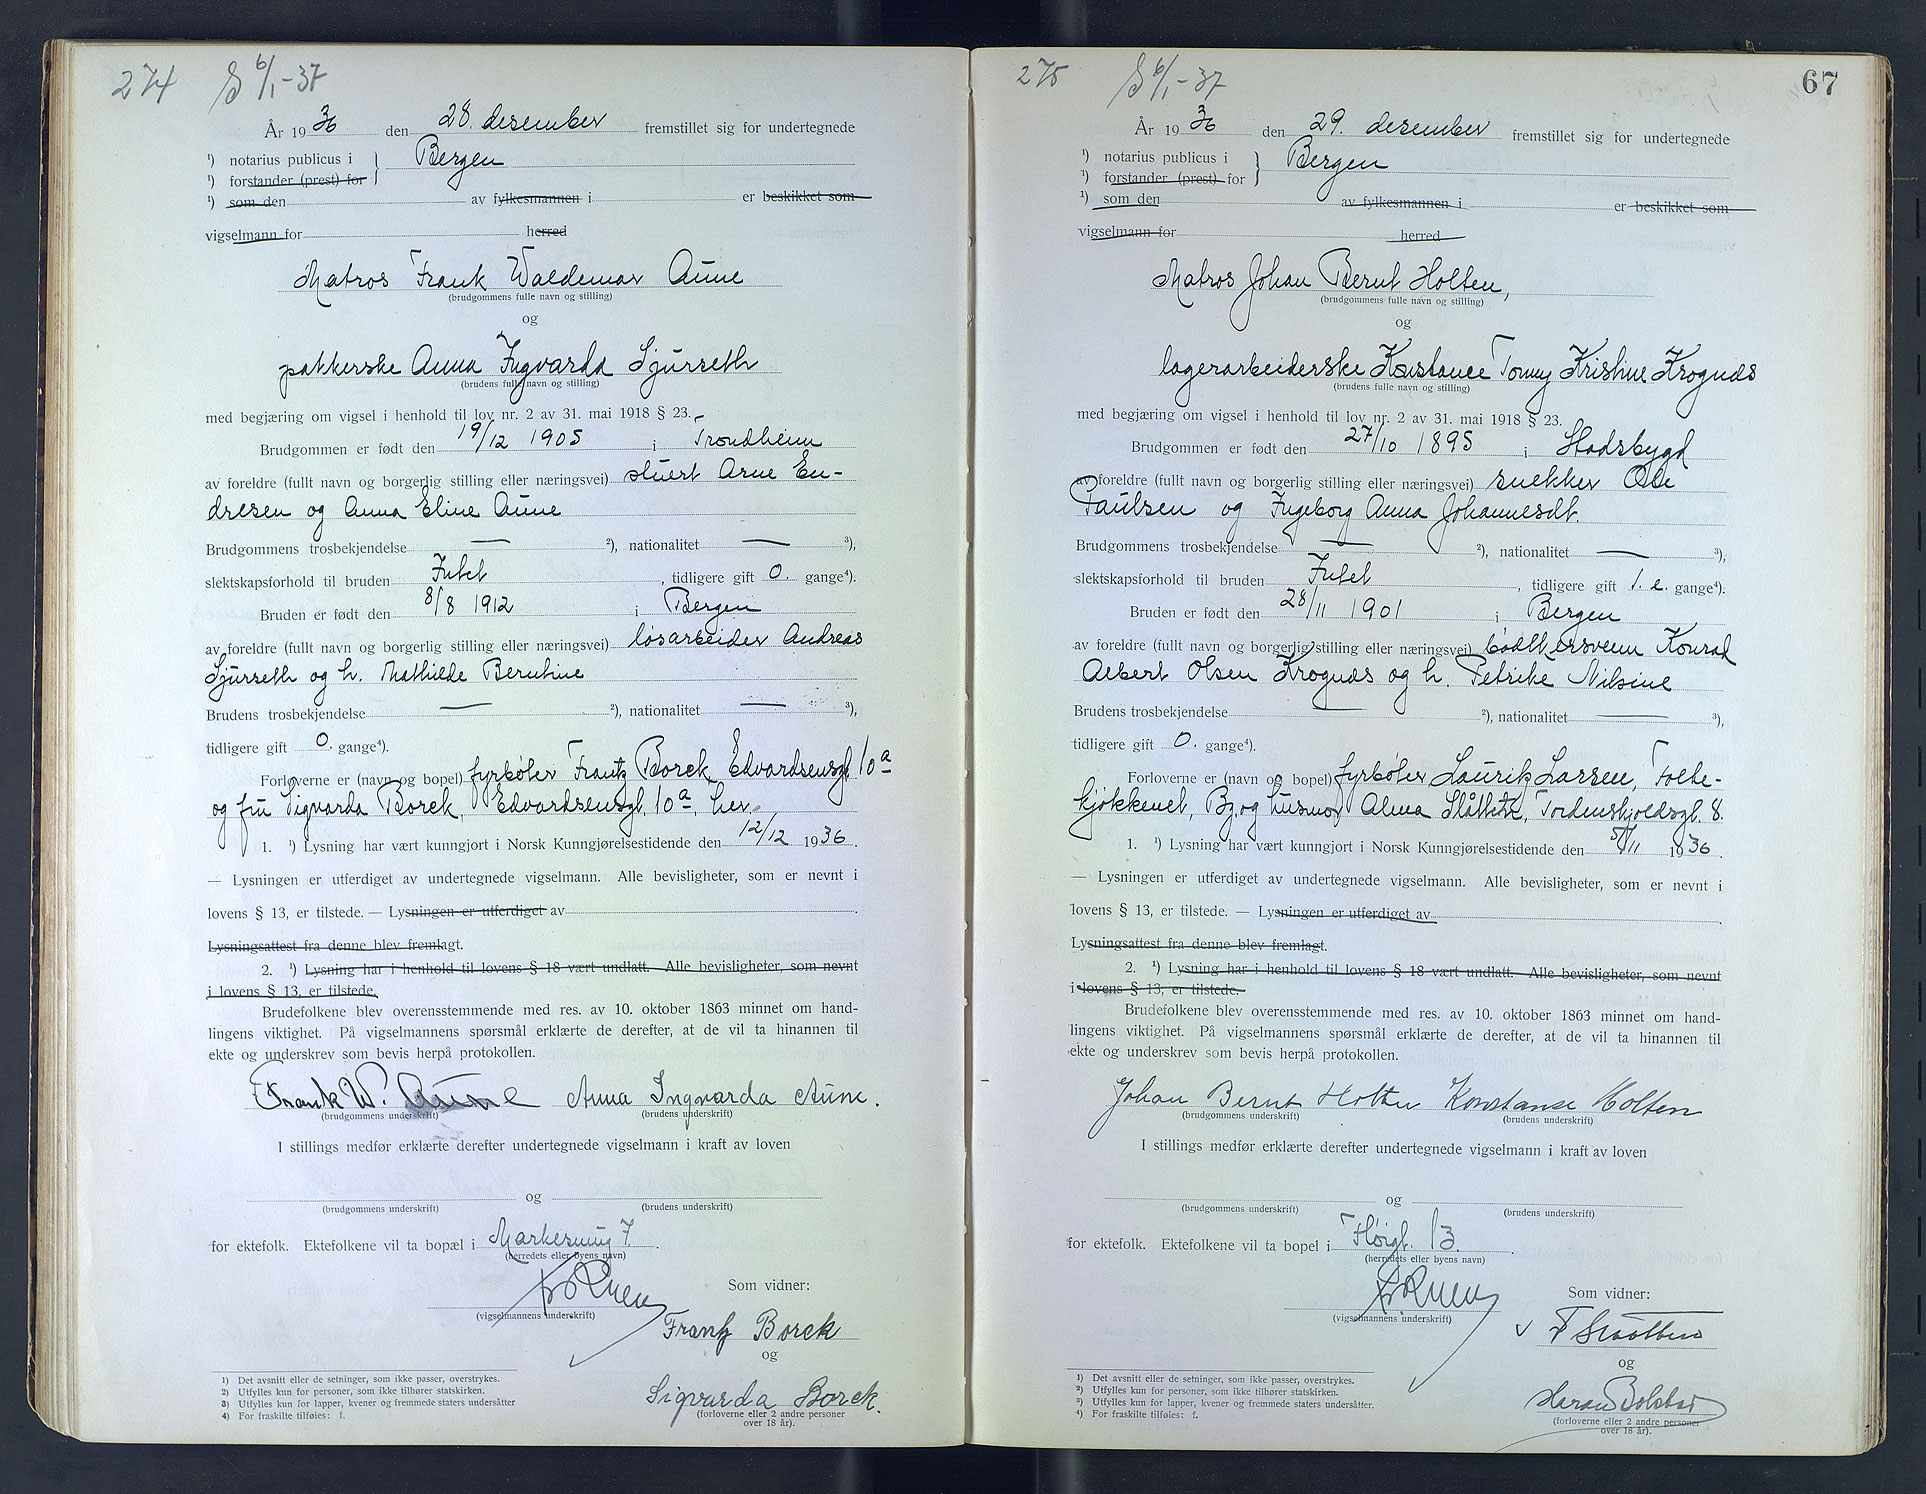 274 S 6/1-37
År 1936 den 28. desember fremstillet sig for undertegnede
¹) notarius publicus i } Bergen
¹) forstander (prest) for
¹) som den av fylkesmannen i er beskikket som
vigselmann for herred
Matros Frank Waldemar Aune
(brudgommens fulle navn og stilling)
og
pakkerske Anna Ingvarda Sjurseth
(brudens fulle navn og stilling)
med begjæring om vigsel i henhold til lov nr. 2 av 31. mai 1918 § 23.
Brudgommen er født den 19/12 1905 i Trondheim
av foreldre (fullt navn og borgerlig stilling eller næringsvei) stuert Arne En-
dresen og Anna Eline Aune
Brudgommens trosbekjendelse — ²), nationalitet — ³),
slektskapsforhold til bruden Intet, tidligere gift 0. gange⁴).
Bruden er født den 8/8 1912 i Bergen
av foreldre (fullt navn og borgerlig stilling eller næringsvei) løsarbeider Andreas
Sjurseth og h. Mathilde Berntine
Brudens trosbekjendelse — ²), nationalitet — ³),
tidligere gift 0. gange⁴).
Forloverne er (navn og bopel) fyrbøter Frantz Borck Edvardsensgt 10a
og fru Sigvarda Borck, Edvardsensgt. 10a, her.
1. ¹) Lysning har vært kunngjort i Norsk Kunngjørelsestidende den 12/12 1936.
— Lysningen er utferdiget av undertegnede vigselmann. Alle bevisligheter, som er nevnt i
lovens § 13, er tilstede. — Lysningen er utferdiget av
Lysningsattest fra denne blev fremlagt.
2. ¹) Lysning har i henhold til lovens § 18 vært undlatt. Alle bevisligheter, som nevnt
i lovens § 13, er tilstede.
Brudefolkene blev overensstemmende med res. av 10. oktober 1863 minnet om hand-
lingens viktighet. På vigselmannens spørsmål erklærte de derefter, at de vil ta hinannen til
ekte og underskrev som bevis herpå protokollen.
Frank W. Aune Anna Ingvarda Aune.
(brudgommens underskrift) (brudens underskrift)
I stillings medfør erklærte derefter undertegnede vigselmann i kraft av loven
og
(brudgommens underskrift) (brudens underskrift)
for ektefolk. Ektefolkene vil ta bopæl i Markesmug 7.
(herredets eller byens navn)
Som vidner:
(vigselmannens underskrift)
Frantz Borck
og
Sigvarda Borck.
(forloverne eller 2 andre personer
over 18 år).
1) Det avsnitt eller de setninger, som ikke passer, overstrykes.
2) Utfylles kun for personer, som ikke tilhører statskirken.
3) Utfylles kun for lapper, kvener og fremmede staters undersåtter
4) For fraskilte tilføies: f.
275 S 6/1-37 67
År 1936 den 29. desember fremstillet sig for undertegnede
¹) notarius publicus i } Bergen
¹) forstander (prest) for
¹) som den av fylkesmannen i er beskikket som
vigselmann for herred
Matros Johan Bernt Holten,
(brudgommens fulle navn og stilling)
og
lagerarbeiderske Konstance Tonny Kristine Krognæs
(brudens fulle navn og stilling)
med begjæring om vigsel i henhold til lov nr. 2 av 31. mai 1918 § 23.
Brudgommen er født den 27/10 1895 i Stadsbygd
av foreldre (fullt navn og borgerlig stilling eller næringsvei) snekker Ole
Paulsen og Ingeborg Anna Johannesdt.
Brudgommens trosbekjendelse — ²), nationalitet — ³),
slektskapsforhold til bruden Intet, tidligere gift 1. e. gange⁴).
Bruden er født den 28/11 1901 i Bergen
av foreldre (fullt navn og borgerlig stilling eller næringsvei) bødkersvenn Konrad
Albert Olsen Krognæs og h. Petrike Nilsine
Brudens trosbekjendelse — ²), nationalitet — ³),
tidligere gift 0. gange⁴).
Forloverne er (navn og bopel) fyrbøter Lauritz Larsen, Folke-
kjøkkenet, Bg. og husmor Alma Slåttete, Tordenskjoldsgt. 8.
1. ¹) Lysning har vært kunngjort i Norsk Kunngjørelsestidende den 5/11 1936.
— Lysningen er utferdiget av undertegnede vigselmann. Alle bevisligheter, som er nevnt i
lovens § 13, er tilstede. — Lysningen er utferdiget av
Lysningsattest fra denne blev fremlagt.
2. ¹) Lysning har i henhold til lovens § 18 vært undlatt. Alle bevisligheter, som nevnt
i lovens § 13, er tilstede.
Brudefolkene blev overensstemmende med res. av 10. oktober 1863 minnet om hand-
lingens viktighet. På vigselmannens spørsmål erklærte de derefter, at de vil ta hinannen til
ekte og underskrev som bevis herpå protokollen.
Johan Bernt Holten Konstanse Holten
(brudgommens underskrift) (brudens underskrift)
I stillings medfør erklærte derefter undertegnede vigselmann i kraft av loven
og
(brudgommens underskrift) (brudens underskrift)
for ektefolk. Ektefolkene vil ta bopel i Fløigt. 13.
(herredets eller byens navn)
Som vidner:
(vigselmannens underskrift)
og
Bolstad
(forloverne eller 2 andre personer
over 18 år).
1) Det avsnitt eller de setninger, som ikke passer, overstrykes.
2) Utfylles kun for personer, som ikke tilhører statskirken.
3) Utfylles kun for lapper, kvener og fremmede staters undersåtter.
4) For fraskilte tilføies: f.